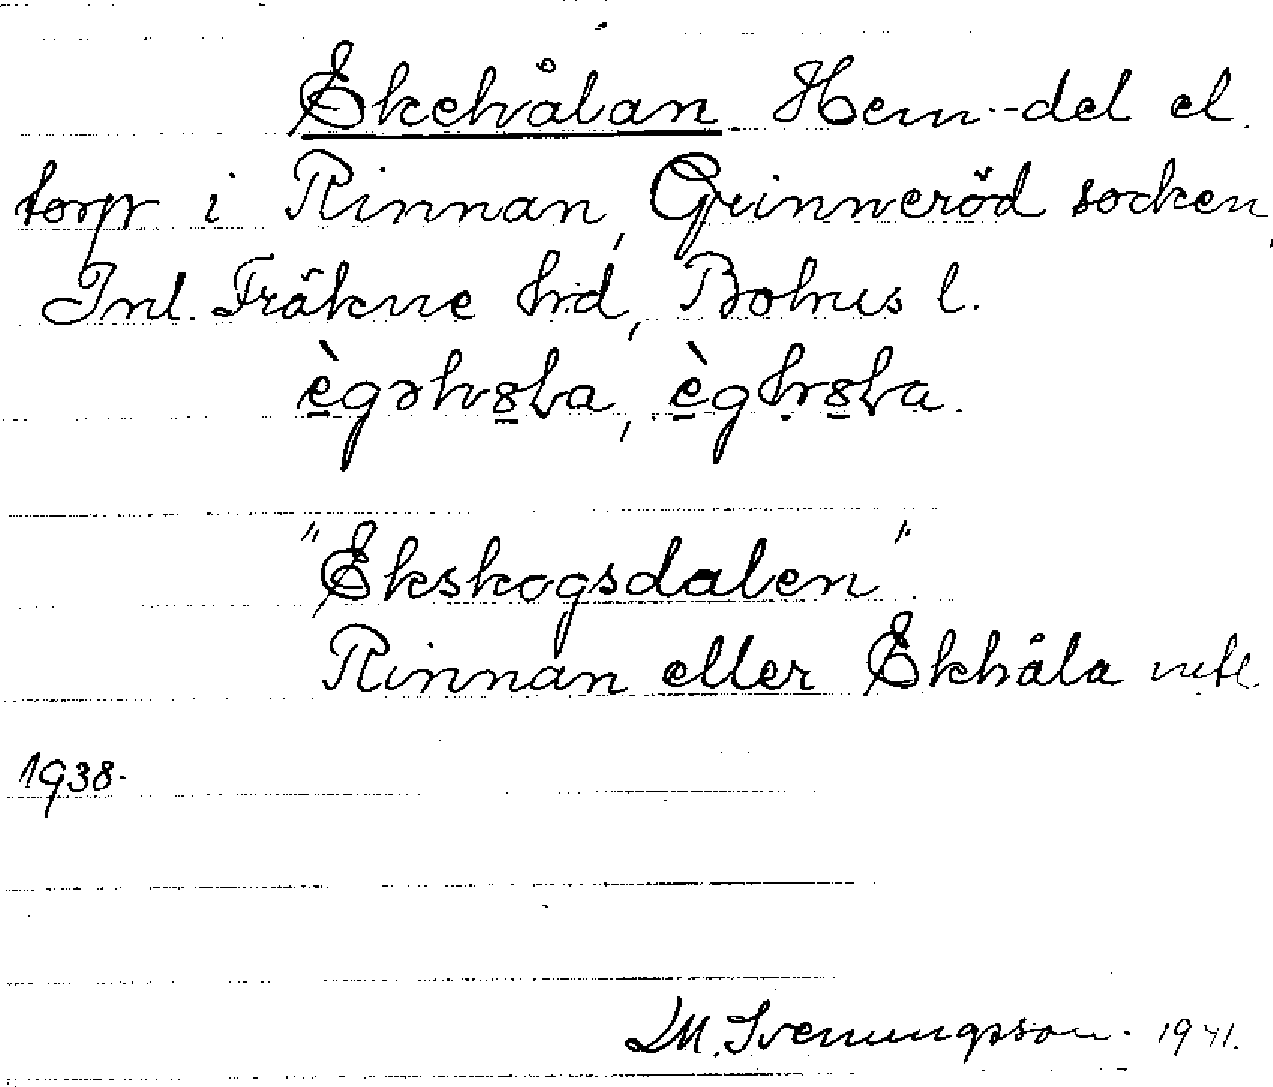 Ekehålan Hem.-del el.
torp i Rinnan, Grinneröd socken,
Inl. Fräkne hd, Bohus l.
"Ekskogsdalen".
Rinnan eller Ekhåla
1938.
M. Svenungsson. 1941.